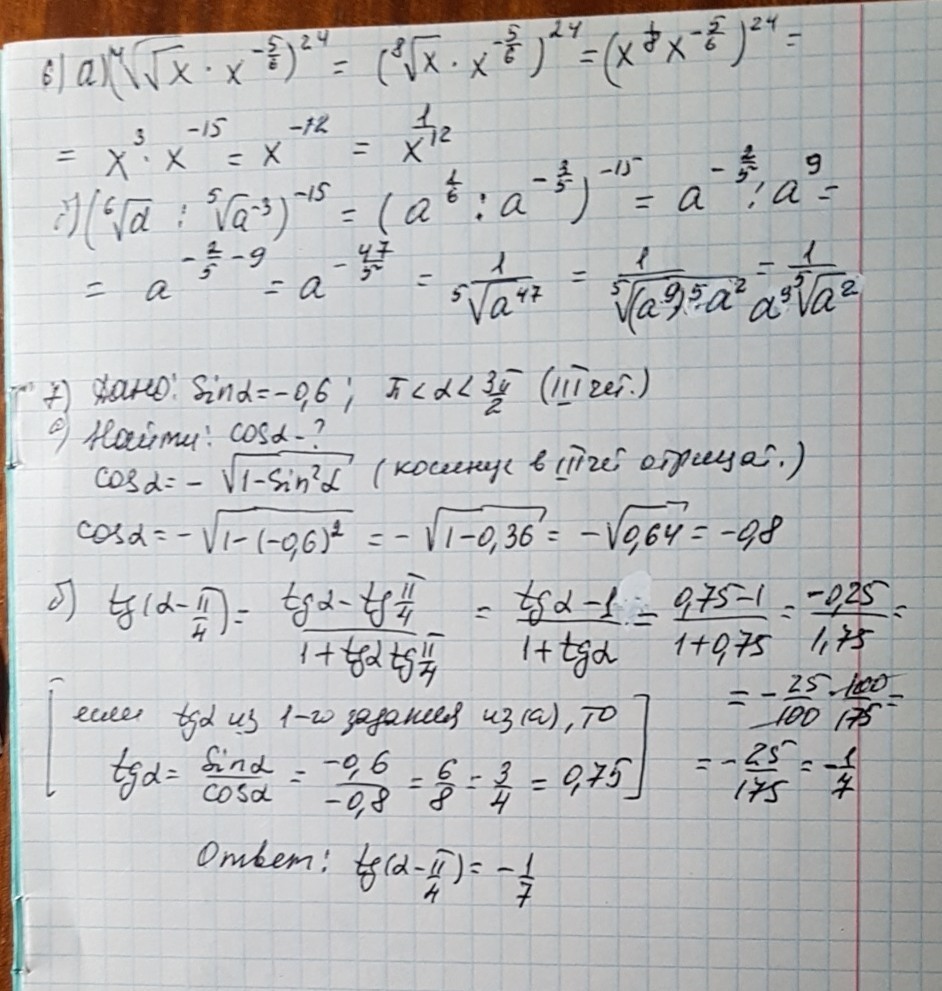 6) а) (⁴√√x · x^(-5/6))^24 = (⁸√x · x^(-5/6))^24 = (x^(1/8) x^(-5/6))^24 =
= x^3 · x^-15 = x^-12 = 1/x^12
(⁶√a : ⁵√a^-3)^-15 = (a^(1/6) : a^(-3/5))^-15 = a^(-2/5) : a^9 =
= a^(-2/5 - 9) = a^(-47/5) = 1/⁵√a^47 = 1/⁵√(a^9)^5 a^2 = 1/a^9 ⁵√a^2
7) Дано: sinα = -0,6; π < α < 3π/2 (III чет.)
а) Найти: cosα - ?
cosα = - √1-sin²α (косинус в III чет отрицат.)
cosα = - √1-(-0,6)² = - √1-0,36 = - √0,64 = -0,8
б) tg(α - π/4) = tgα - tg π/4 / 1 + tgα tg π/4 = tgα - 1 / 1 + tgα = 0,75 - 1 / 1 + 0,75 = -0,25 / 1,75 =
= - 25/100 · 100/175 =
[если tgα из 1-го задания из (а), то
tgα = sinα/cosα = -0,6/-0,8 = 6/8 = 3/4 = 0,75] = - 25/175 = - 1/7
Ответ: tg(α - π/4) = - 1/7